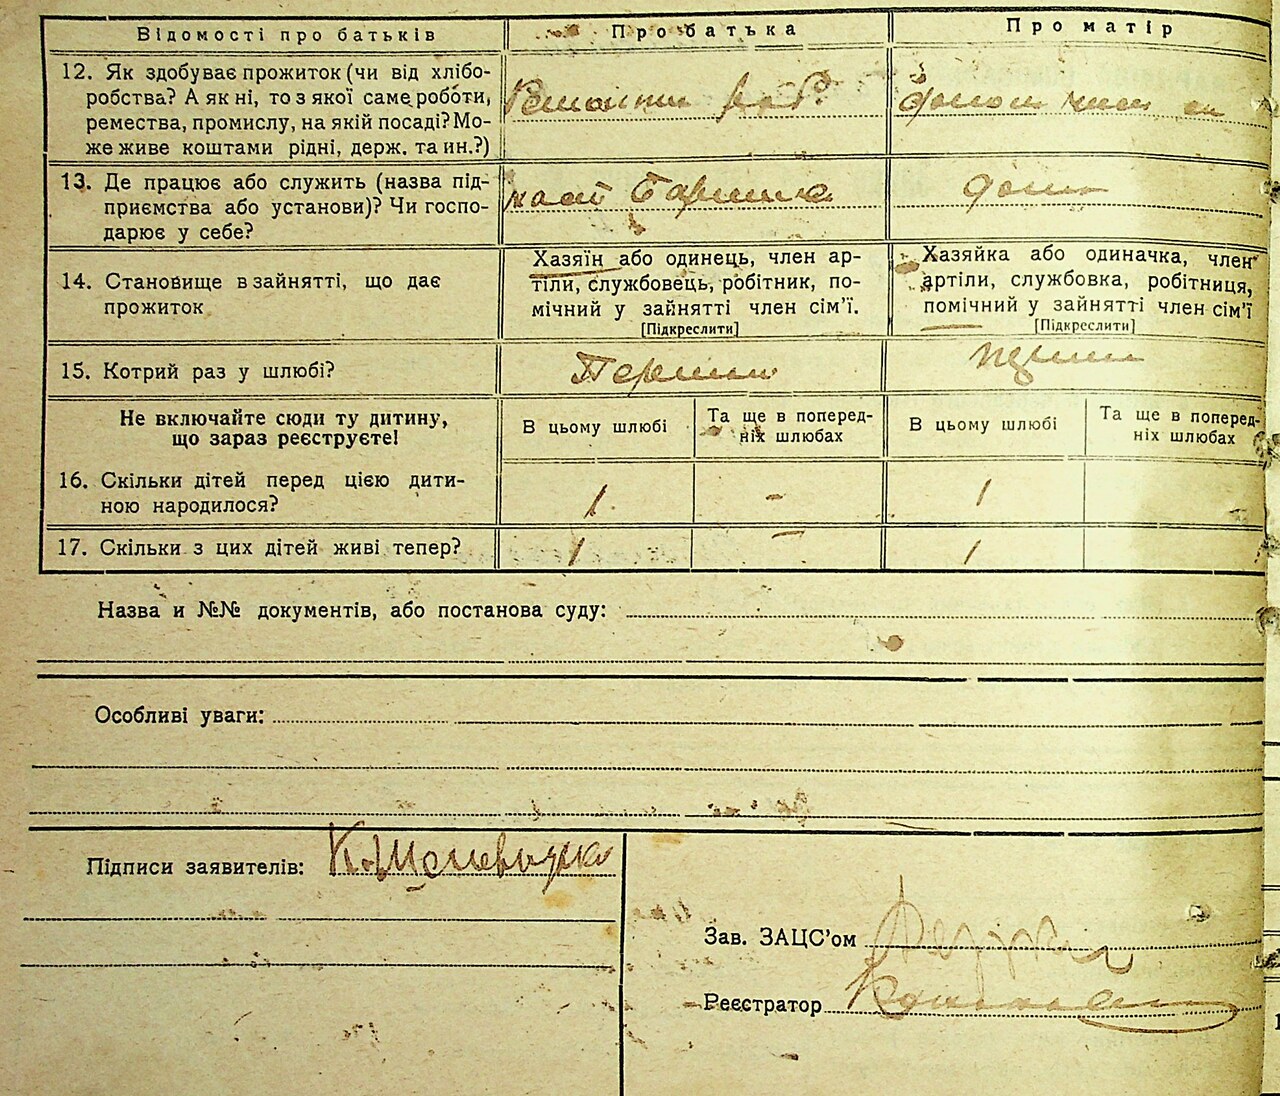 Відомості про батьків
Про батька
Про матір
12. Як здобуває прожиток (чи від хлібо-
робства? А як ні, то з якої саме роботи,
ремества, промислу, на якій посаді? Мо-
же живе коштами рідні, держ. та ин.?)
13. Де працює або служить (назва під-
приємства або установи)? Чи госпо-
дарює у себе?
14. Становище в зайнятті, що дає
прожиток
Хазяїн або одинець, член ар-
тіли, службовець, робітник, по-
мічний у зайнятті член сім’ї.
[Підкреслити]
Хазяйка або одиначка, член
артіли, службовка, робітниця,
помічний у зайнятті член сім’ї
[Підкреслити]
15. Котрий раз у шлюбі?
Не включайте сюди ту дитину,
що зараз реєструєте!
В цьому шлюбі
Та ще в поперед-
ніх шлюбах
В цьому шлюбі
Та ще в поперед-
ніх шлюбах
16. Скільки дітей перед цією дити-
ною народилося?
1 - 1
17. Скільки з цих дітей живі тепер?
1 - 1
Назва и №№ документів, або постанова суду:
Особливі уваги:
Підписи заявителів:
Зав. ЗАЦС’ом
Реєстратор